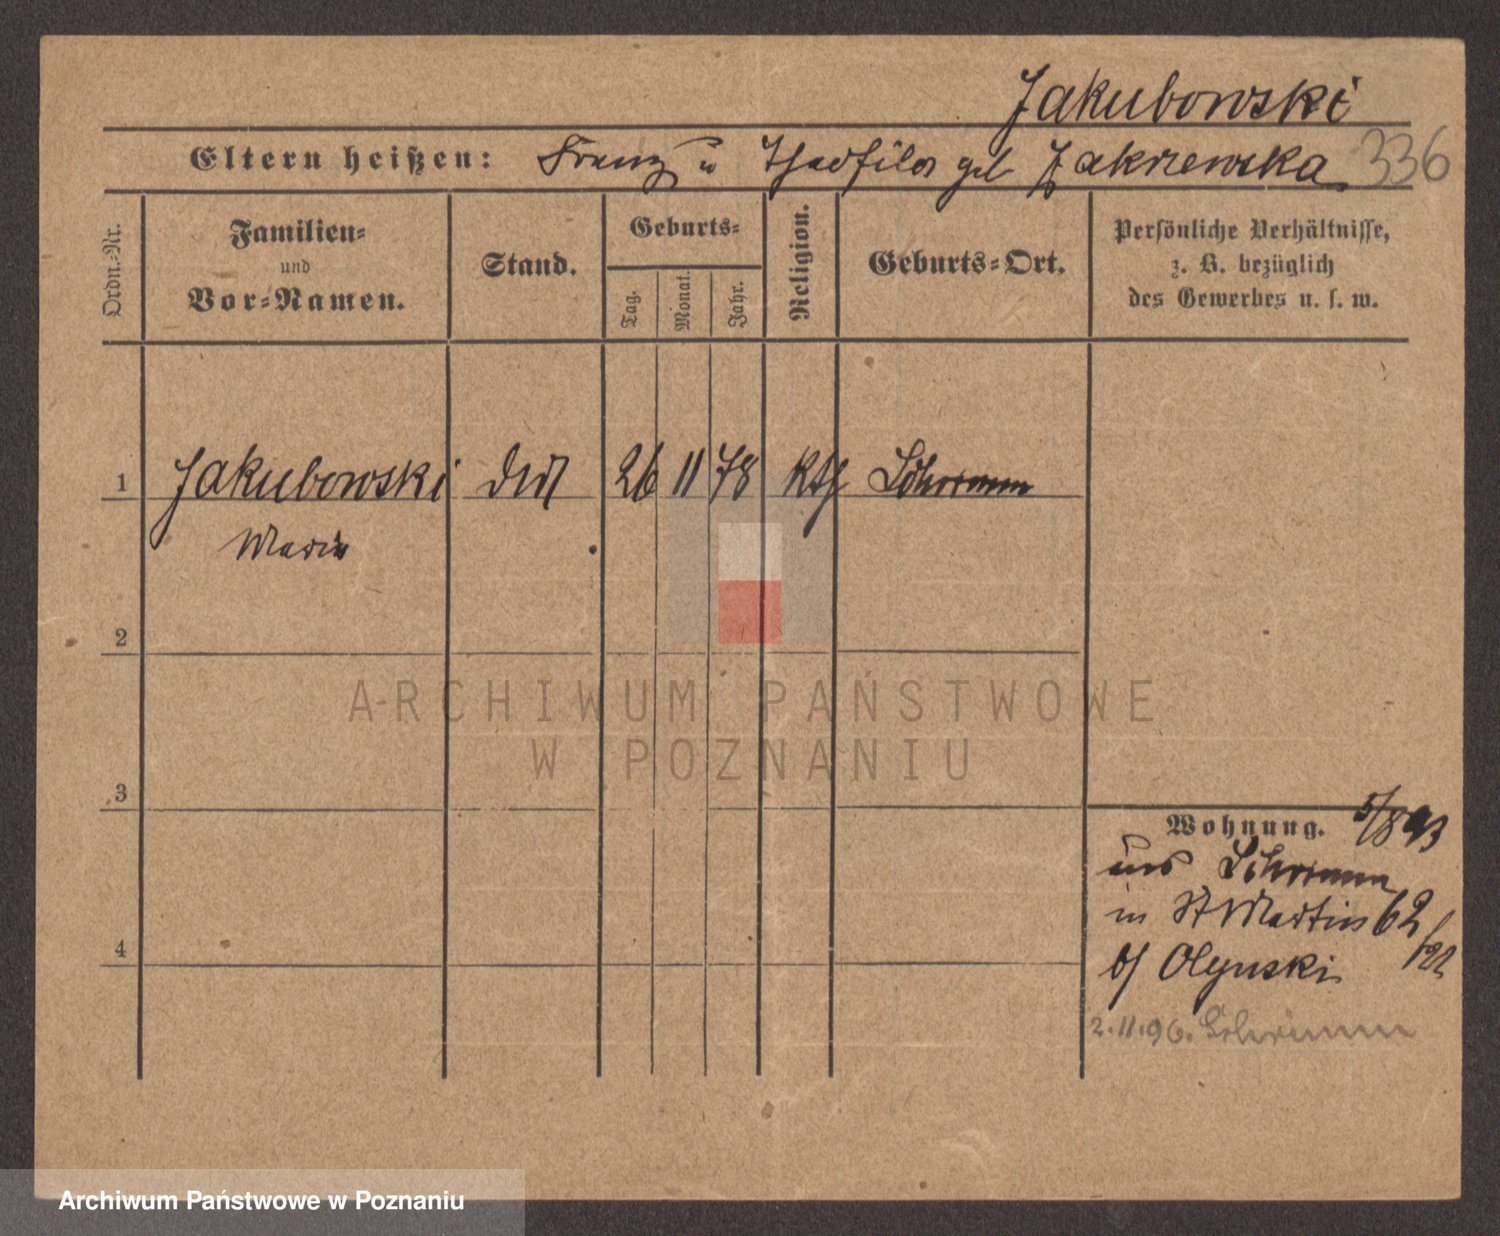 Jakubowski
Eltern heißen: Franz u Theofila geb Zakrzewska 336
Ordn.-Nr.
Familien-
und
Vor-Namen.
Stand.
Geburts-
Tag.
Monat.
Jahr.
Religion.
Geburts-Ort.
Persönliche Verhältnisse,
z. B. bezüglich
des Gewerbes u. s. w.
1 Jakubowski 26 11 78 kth Schrimm
Maria
2
3
4
Wohnung. 5/8 93
aus Schrimm
in St Martin 62
b/ Olynski
2.11.96. Schrimm
ARCHIWUM PAŃSTWOWE
W POZNANIU
Archiwum Państwowe w Poznaniu